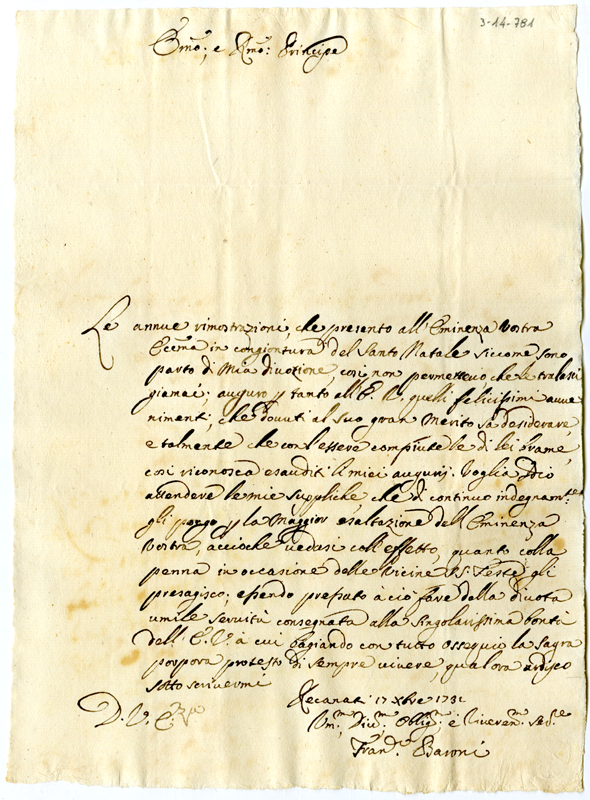 3-14-781
Emo: e Rmo: Principe
Le annue rimostrazioni, che presento all'Eminenza Vostra
in congiontura del Santo Natale siccome sono
parto di Mia divozione, così non permettevo che le tralassi
giamai; auguro tanto all'E. V. quelli felicissimi avve
nimenti, che dovuti al suo gran Merito sà desiderare,
e talmente che con l'essere compiute le di lei brame,
così riconosca esauditi li miei augurij. Voglia Dio
attendere le mie suppliche, che di continuo indegnamte:
gli porgo la Maggior esaltazione dell'Eminenza
Vostra, acciochè vedasi coll'effetto, quanto colla
penna in occasione delle Vicine SS. Feste gli
presagisco; essendo a ciò fare dalla divota
umile servitù consegnata alla singolarissima bontà
dell'E. V. à cui bagiando con tutto ossequio la sagra
porpora protesto di sempre vivere, qualora ardisco
sottoscrivermi
Recanati 17 Xbre 1731
D. V. E.
Um: Div: Obblig: e
Fran: Baroni